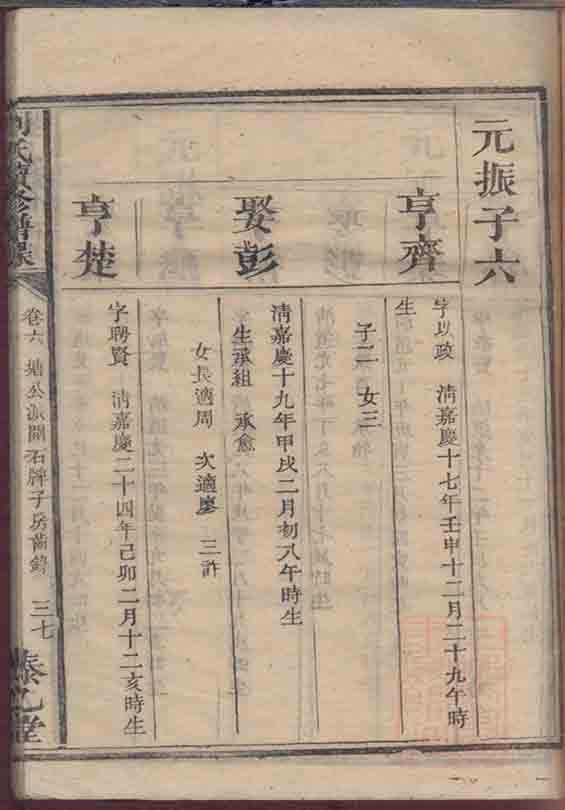 元振子六
亨齊
字以政　清嘉慶十七年壬申十二月二十九午時
生
子二　女三
娶彭
清嘉慶十九年甲戌二月初八午時生
生承組　承愈
女長適周　次適廖　三許
亨楚
字聘賢　清嘉慶二十四年己卯二月十二亥時生
氏續修譜
卷六　塘公派開石牌子房
三七